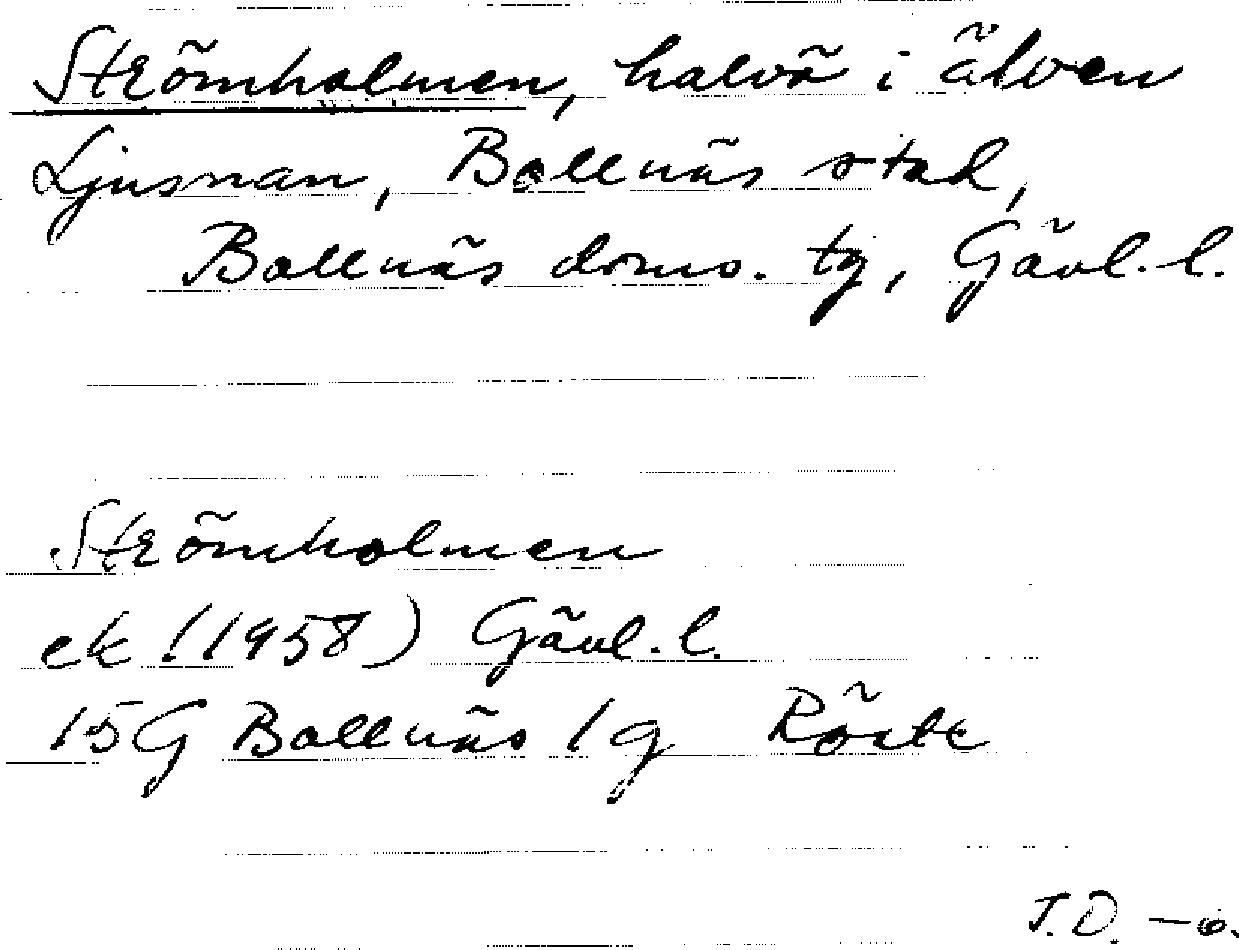 Strömholmen, halvö i älven
Ljusnan, Bollnäs stad,
Bollnäs doms. tg, Gävl. l.
Strömholmen
ek (1958) Gävl. l.
15G Bollnäs 1g Röste
J.D.